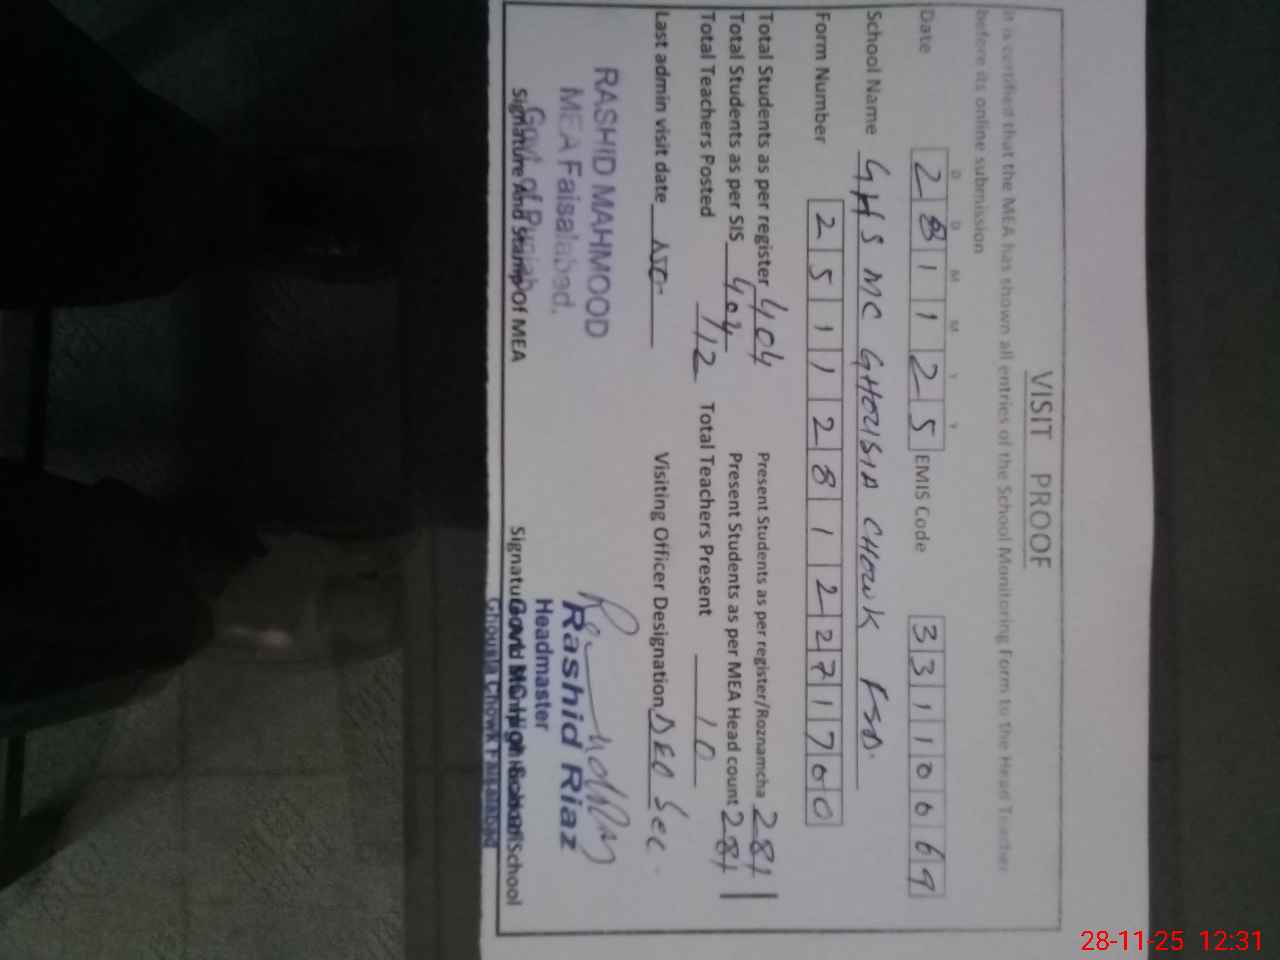 VISIT PROOF
It is certified that the MEA has shown all entries of the School Monitoring Form to the Head Teacher
before its online submission
D D M M Y Y
Date 2 8 1 1 2 5 EMIS Code 3 3 1 1 0 0 6 9
School Name GHS MC GHOUSIA CHOWK FSD.
Form Number 2 5 1 1 2 8 1 2 2 7 1 7 0 0
Total Students as per register 404 Present Students as per register/Roznamcha 281
Total Students as per SIS 404 Present Students as per MEA Head count 281
Total Teachers Posted 12 Total Teachers Present 10
Last admin visit date Visiting Officer Designation DEO Sec.
RASHID MAHMOOD
MEA Faisalabad.
Govt. of Punjab
Signature And Stamp Of MEA
Rashid Riaz
Headmaster
Govt. MC High School
Ghousia Chowk Faisalabad
28-11-25 12:31